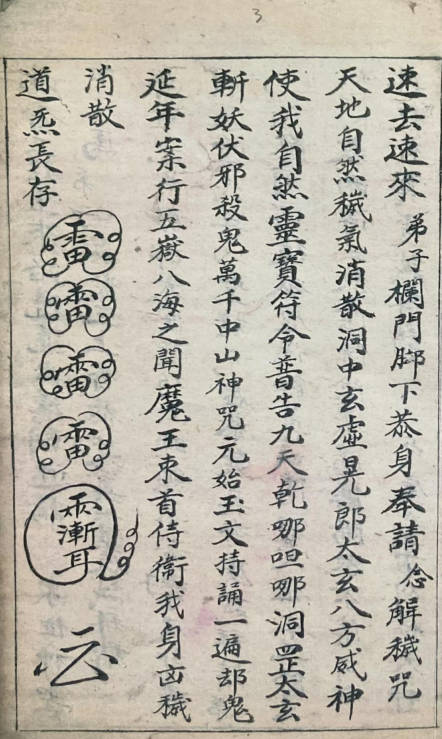 3
速去速來 弟子欄門脚下恭身奉請 念 解穢咒
天地自然穢氣消散洞中玄虛晃郎太玄八方威神
使我自然靈寶符令普告九天乾哪呾哪洞罡太玄
斬妖伏邪殺鬼萬千中山神咒元始玉文持誦一遍却鬼
延年案行五嶽八海之聞魔王束首侍衛我身凶穢
消散
道炁長存
雷
雷
雷
雷